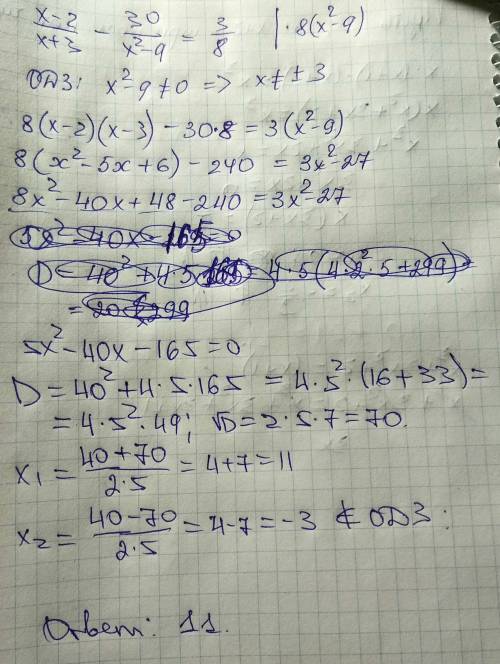 (x-2)/(x+3) - 30/(x²-9) = 3/8 | · 8(x²-9)
ОДЗ: x²-9≠0 => x≠±3
8(x-2)(x-3) - 30·8 = 3(x²-9)
8(x²-5x+6) - 240 = 3x²-27
8x²-40x+48-240=3x²-27
5x²-40x-165=0
5x²-40x-165=0
D=40²+4·5·165 = 4·5²·(16+33)=
=4·5²·49; √D=2·5·7=70.
x₁ = (40+70)/(2·5) = 4+7=11
x₂ = (40-70)/(2·5) = 4-7=-3 ∉ ОДЗ.
Ответ: 11.